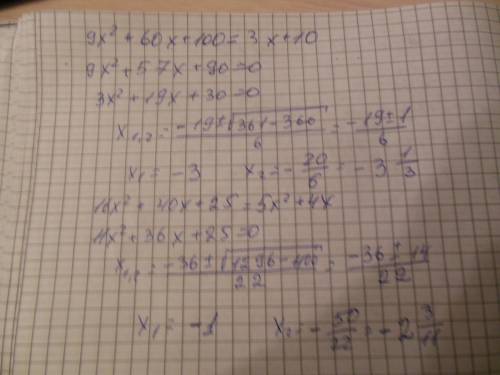 9x² + 60x + 100 = 3x + 10
9x² + 57x + 90 = 0
3x² + 19x + 30 = 0
x₁,₂ = (-19 ± √(361 - 360))/6 = (-19 ± 1)/6
x₁ = -3 x₂ = -20/6 = -3 1/3
16x² + 40x + 25 = 5x² + 4x
11x² + 36x + 25 = 0
x₁,₂ = (-36 ± √(1296 - 1100))/22 = (-36 ± 14)/22
x₁ = -1